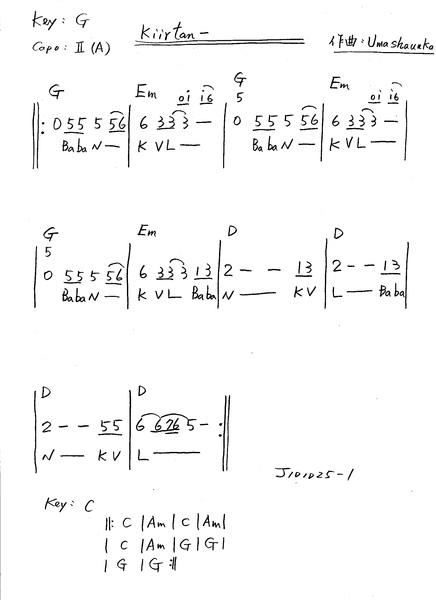 Key: G
Kiirtan-
Capo: II (A)
作曲: Umashauko
G Em G Em
5
01 i6 01 i6
‖: 0 55 5 56 | 6 33 3 — | 0 55 5 56 | 6 33 3 — |
BabaN — K VL — BabaN — K VL —
G Em D D
5
0 55 5 56 | 6 33 3 13 | 2 - - 13 | 2 - - 13 |
BabaN — K VL Baba N — KV L — Baba
D D
2 - - 55 | 6 676 5 - :‖
N — KV L —
J101025-1
Key: C
‖: C |Am | C |Am|
| C |Am |G |G |
| G |G :‖